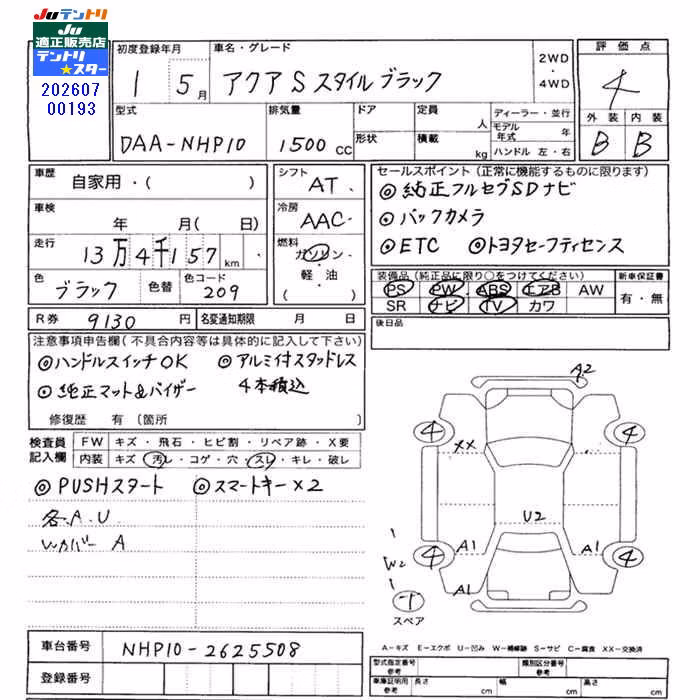 JUテントリ
JU
適正販売店
テントリ
★スター
202607
00193
初度登録年月
1 5月
車名・グレード
アクア S スタイル ブラック
2WD
・
4WD
評価点
4
外装 内装
B B
型式
DAA-NHP10
排気量
1500 CC
ドア
形状
定員 人
積載 kg
ディーラー・並行
モデル年式 年
ハンドル 左・右
車歴
自家用・( )
シフト
AT
車検
年 月( 日)
冷房
AAC
走行
13万4千157km
燃料
ガソリン・軽・油
( )
色
ブラック
色替
色コード
209
R券 9130円
名変通知期限 月 日
セールスポイント(正常に機能するものに限ります)
◎純正フルセグSDナビ
◎バックカメラ
◎ETC ◎トヨタセーフティセンス
装備品(純正品に限り○をつけてください)
PS PW ABS エアB AW
SR ナビ TV カワ
新車保証書
有・無
後日品
注意事項申告欄(不具合内容等は具体的に記入して下さい)
◎ハンドルスイッチOK ◎アルミ付スタッドレス
◎純正マット&バイザー 4本積込
修復歴 有 〔箇所 〕
検査員記入欄
FW キズ・飛石・ヒビ割・リペア跡・X要
内装 キズ・汚レ・コゲ・穴・スレ・キレ・破レ
◎PUSHスタート ◎スマートキー×2
各.A.U
Wカバー A
A2
4 4
XX
U2
4 4
A1 A1
W2
A1
T
スペア
A-キズ E-エクボ U-凹み W-補修跡 S-サビ C-腐食 XX-交換済
車台番号 NHP10-2625508
登録番号
型式指定番号
参考
類別区分番号
参考
車庫証明用
参考
長さ cm
幅 cm
高さ cm